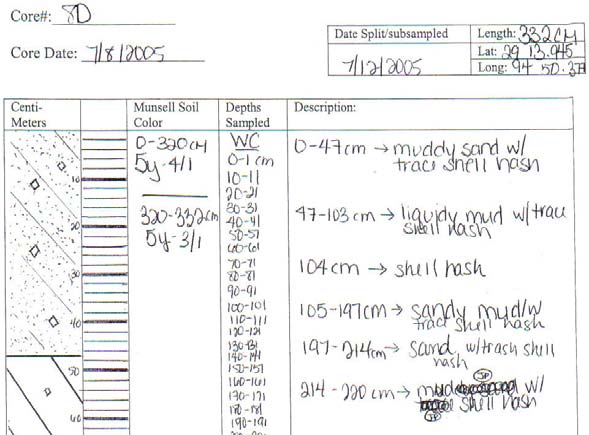 Core#: 8D
Core Date: 7/8/2005
Date Split/subsampled
7/12/2005
Length: 332CM
Lat: 29 13.945
Long: 94 50.37
Centi-
Meters
Munsell Soil
Color
Depths
Sampled
Description:
0-320cm
5y-4/1
320-332cm
5y-3/1
WC
0-1 cm
10-11
20-21
30-31
40-41
50-51
60-61
70-71
80-81
90-91
100-101
110-111
120-121
130-131
140-141
150-151
160-161
170-171
180-181
190-191
0-47cm → muddy sand w/
trace shell hash
47-103 cm → liquidy mud w/trace
shell hash
104cm → shell hash
105-197cm → sandy mud/w
trace shell hash
197-214cm → sand w/trash shell
hash
214-220 cm → mud w/
shell hash
10
20
30
40
50
60